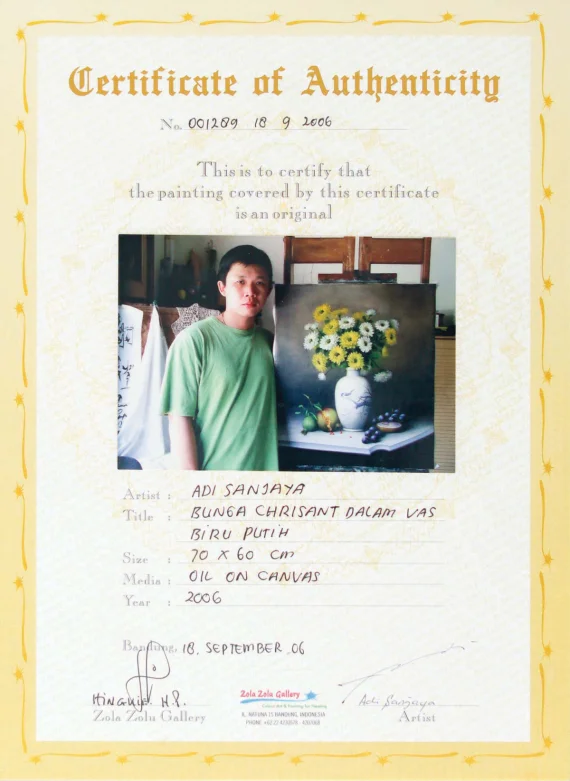 Certificate of Authenticity
No. 001289 18 9 2006
This is to certify that
the painting covered by this certificate
is an original
Artist : ADI SANJAYA
Title : BUNGA CHRISANT DALAM VAS
BIRU PUTIH
Size : 70 X 60 cm
Media : OIL ON CANVAS
Year : 2006
Bandung, 18. SEPTEMBER .06
Zola Zolu Gallery
HINGKIE H.P.
Zola Zolu Gallery
BANDUNG, INDONESIA
Adi Sanjaya
Artist